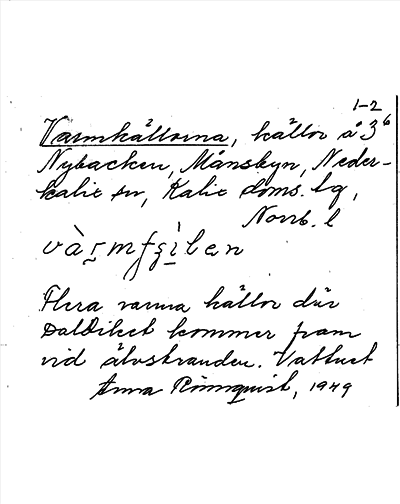 1-2
Varmkällorna, källor å 3⁶
Nybacken, Månsbyn, Neder-
kalix sn, Kalix doms. lg,
Norrb. l
Flera varma källor där
kommer fram
vid älvstranden. Vattnet
Anna Rönnquist, 1949